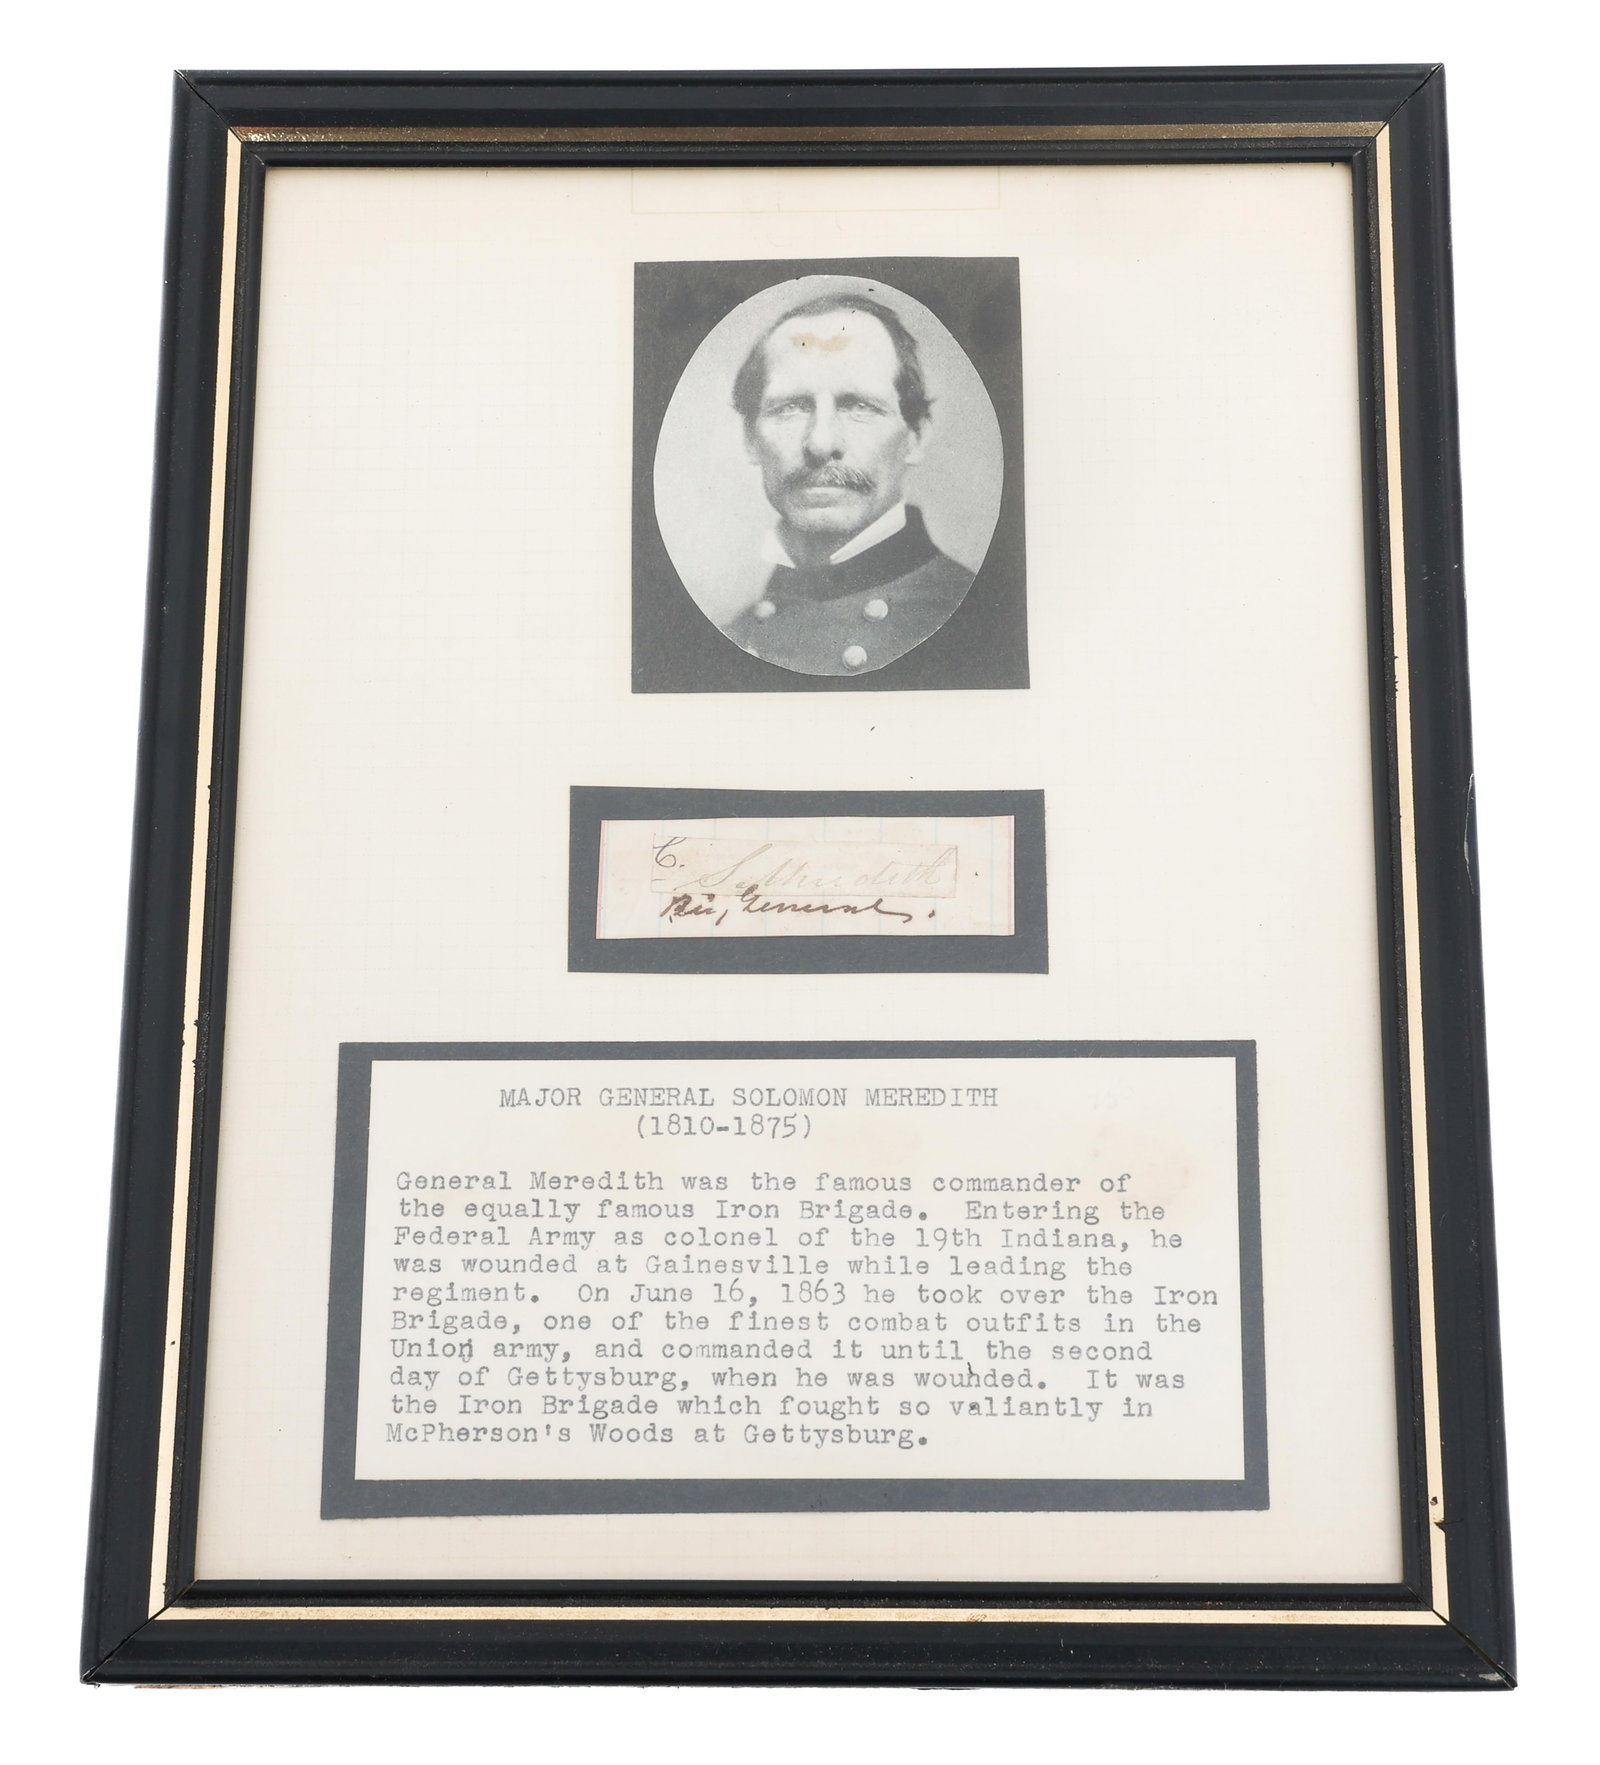 C.
S. Meredith
General
MAJOR GENERAL SOLOMON MEREDITH
(1810-1875)
General Meredith was the famous commander of
the equally famous Iron Brigade. Entering the
Federal Army as colonel of the 19th Indiana, he
was wounded at Gainesville while leading the
regiment. On June 16, 1863 he took over the Iron
Brigade, one of the finest combat outfits in the
Union army, and commanded it until the second
day of Gettysburg, when he was wounded. It was
the Iron Brigade which fought so valiantly in
McPherson's Woods at Gettysburg.